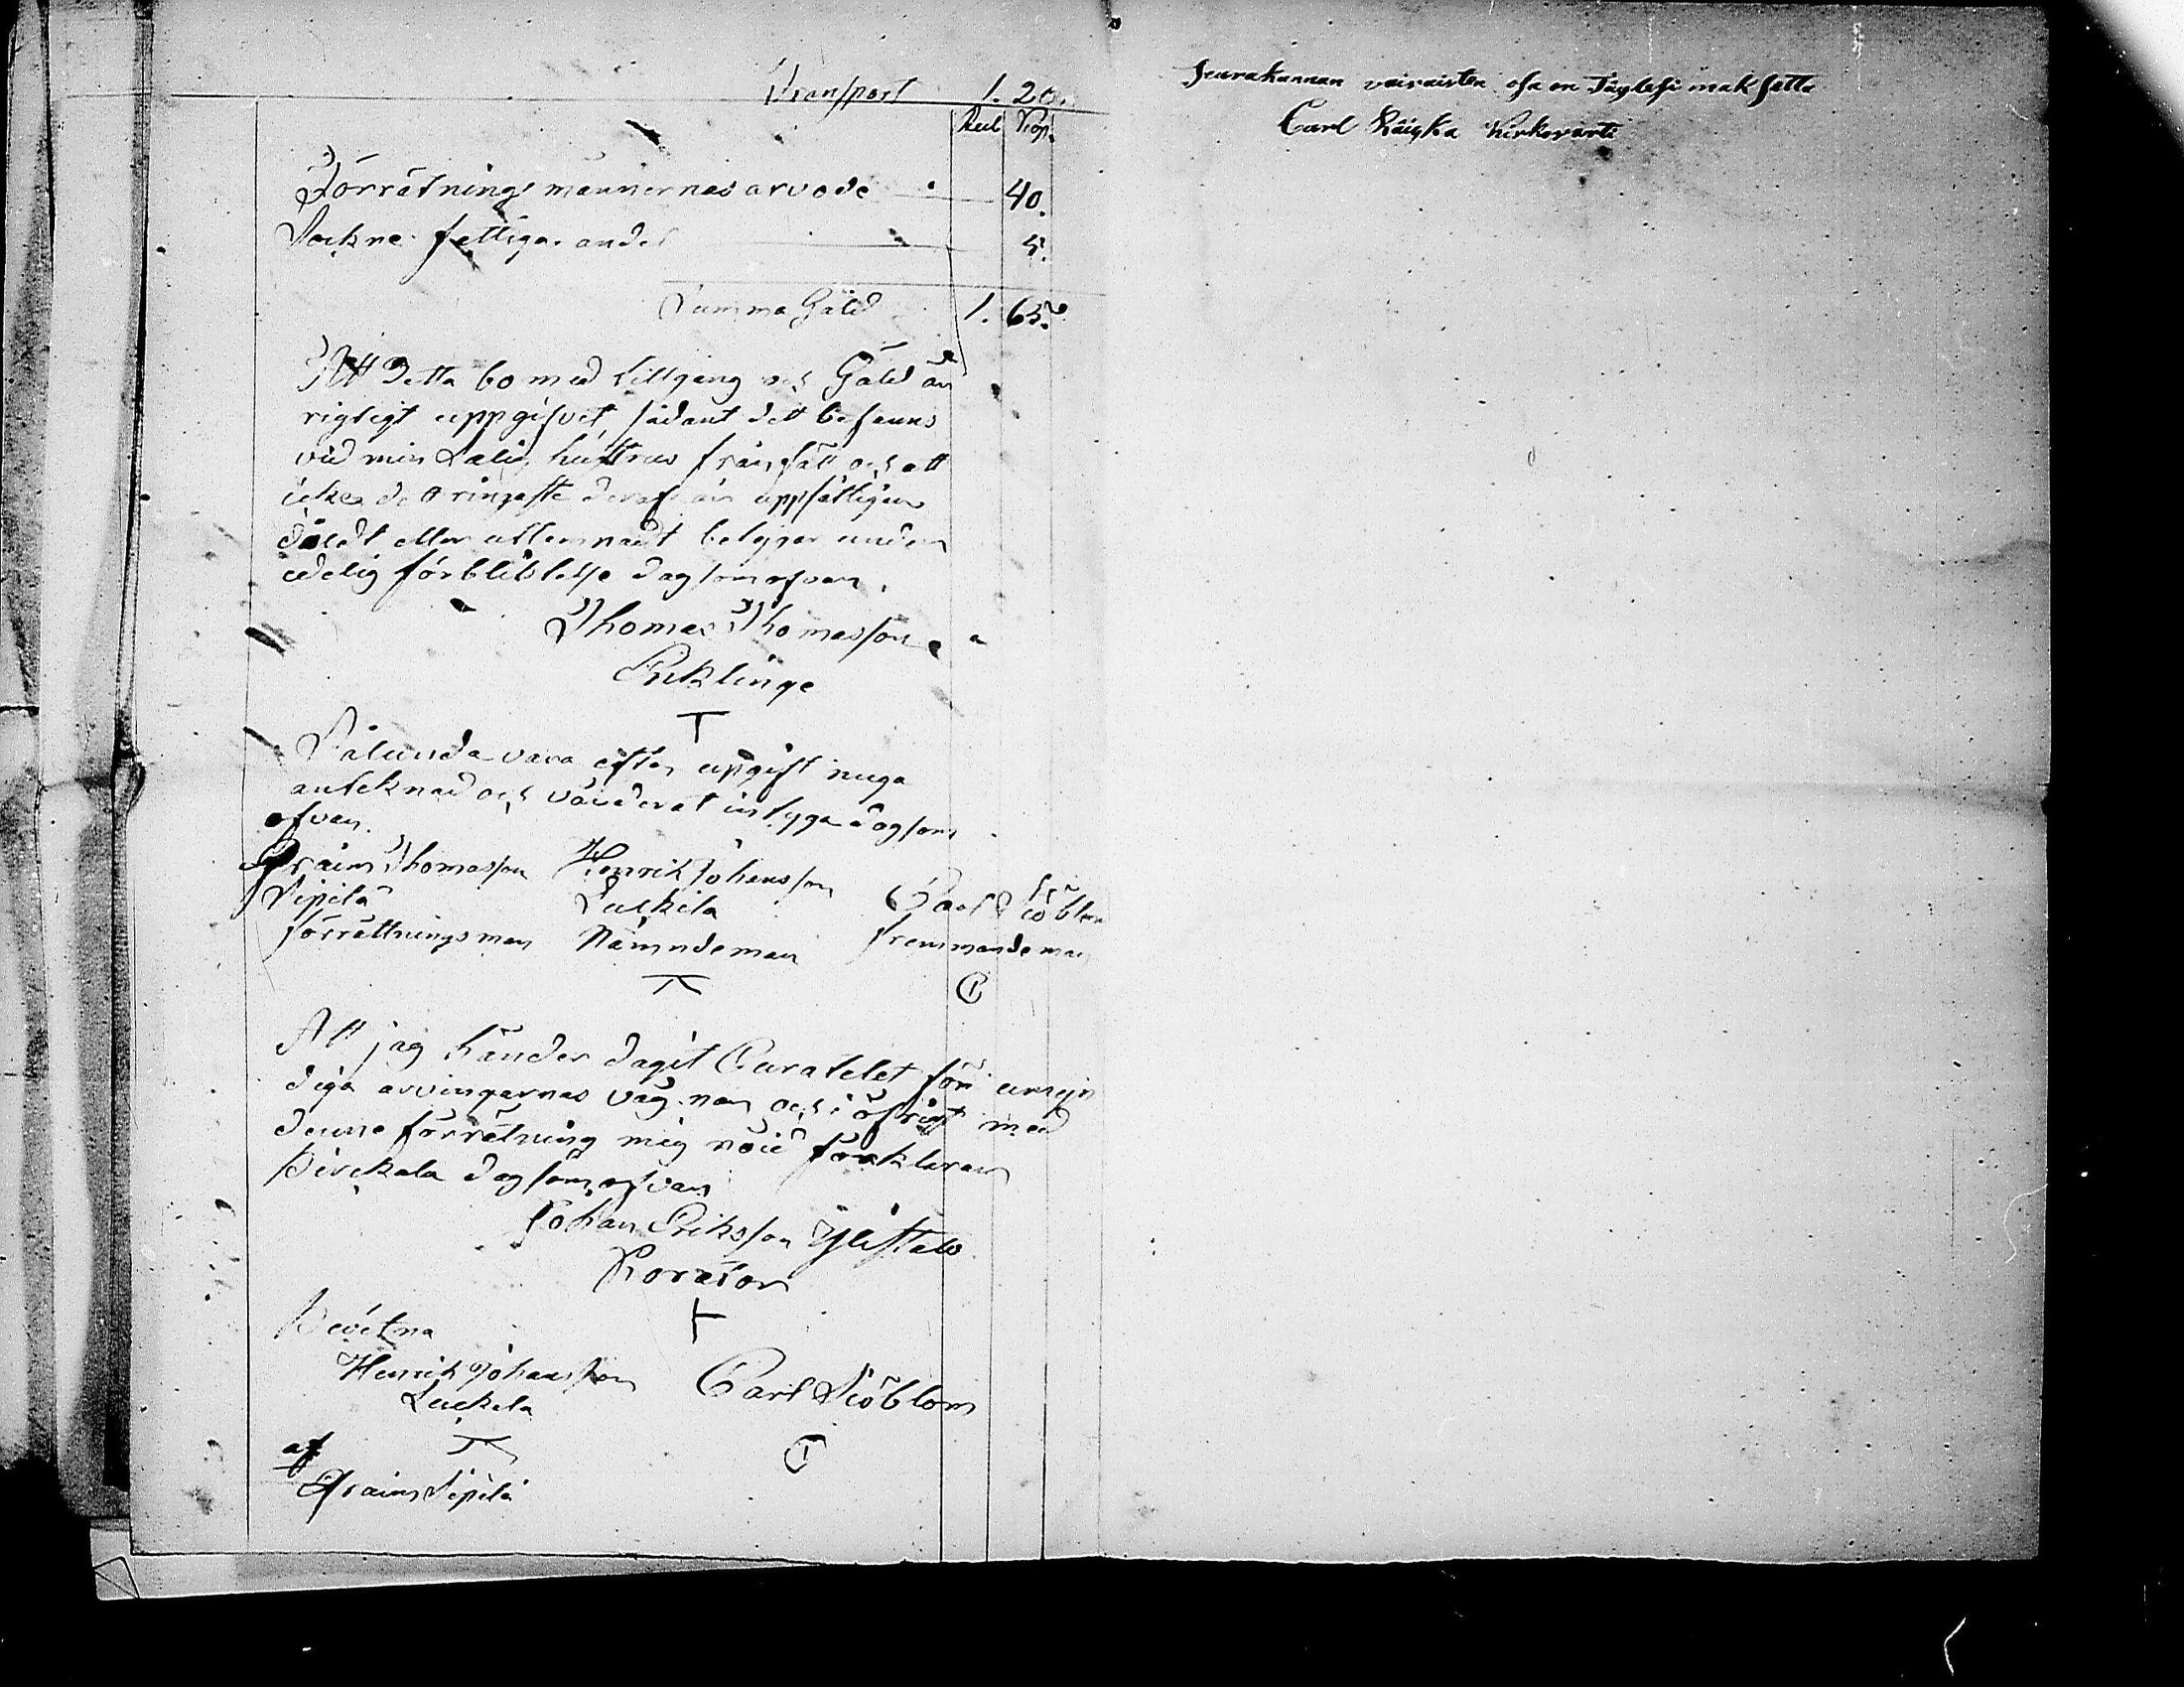 Transport 1. 20.
Rub Kop.
Förrätnings männernas arvode 40.
Sockne fattigas andel 5.
Summa Gäld 1. 65.
Att Detta bo med tillgång och Gäld är
rigtigt uppgifvet, sådant dett befanns
vid min Salig hustrus frånfäll och att
icke det ringaste deraf är uppsåtligen
döldt eller utlemnadt betygar under
edelig förblidelse dag som ofvan.
Thomas Thomasson
Enklinge
Sålunda vara efter upgift noga
anteknad och värderat intyga dag som
ofvan.
Efraim Thomasson Henrik Johansson Carl Siöblom
Sipilä Luckila
förrättningsman Nämndeman fremmande man
Att jag händer dagit Curatelet för umyn
diga arvingarnas vägnar och i öfrigt med
denne förrätning mig nöid förklarar
Birckala dag som ofvan
Johan Eriksson Ylistalo
Korator
Bevitna
Henrik Johansson Carl Siöblom
Luckila
af
Efraim Sipilä
Seurakunnan vaivaisten osa on Täyhesi maksettu
Carl Räiskä Kirkovarti